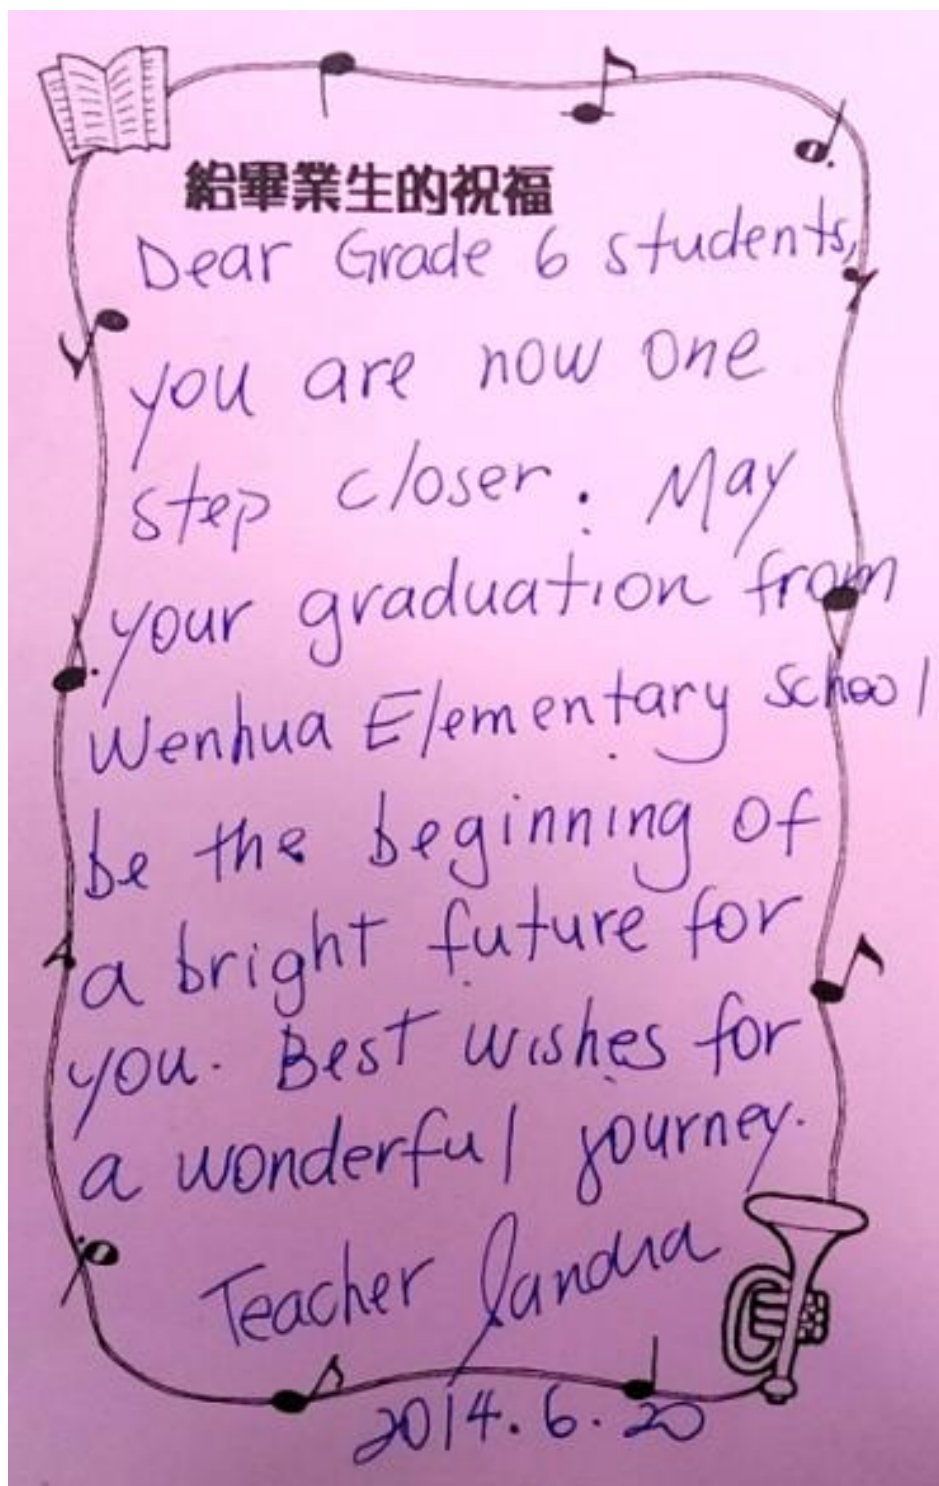 給畢業生的祝福
Dear Grade 6 students,
you are now one
step closer. May
your graduation from
Wenhua Elementary School
be the beginning of
a bright future for
you. Best wishes for
a wonderful journey.
Teacher Sandra
2014.6.20